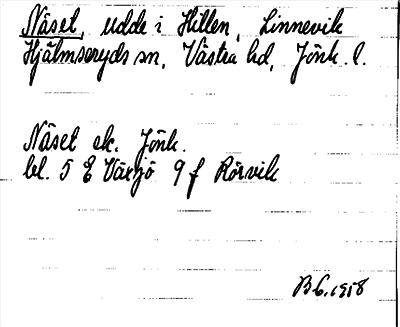 Näset, udde i Hillen, Linnevik
Hjälmseryds sn, Västra hd, Jönk. l.
Näset ek. Jönk.
bl. 5 E Växjö 9 f Rörvik
B G. 1958